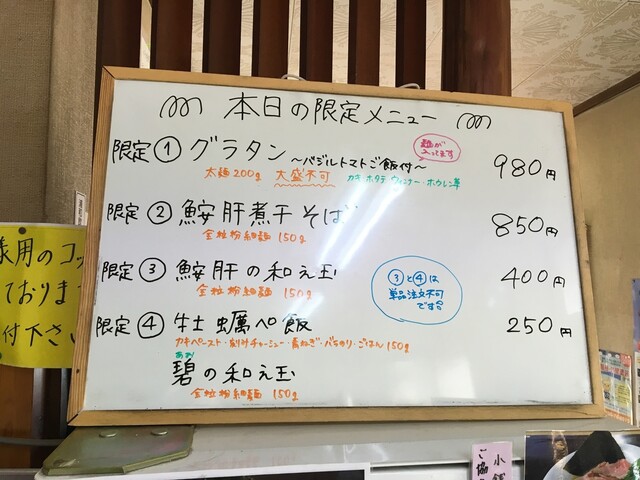 本日の限定メニュー
限定① グラタン 〜バジルトマトご飯付〜 980円
麺が
入ってます
太麺200g 大盛不可 カキ・ホタテ・ウィンナー・ホウレン草
限定② 鮟肝煮干そば 850円
全粒粉細麺 150g
限定③ 鮟肝の和え玉 400円
全粒粉細麺 150g
③と④は
単品注文不可
です
限定④ 牡蠣ペ飯 250円
カキペースト・刻みチャーシュー・青ねぎ・バラのり・ごはん 150g
あお
碧の和え玉
全粒粉細麺 150g
様用のコッ
ておりま
付下さい
小鉢
ご協